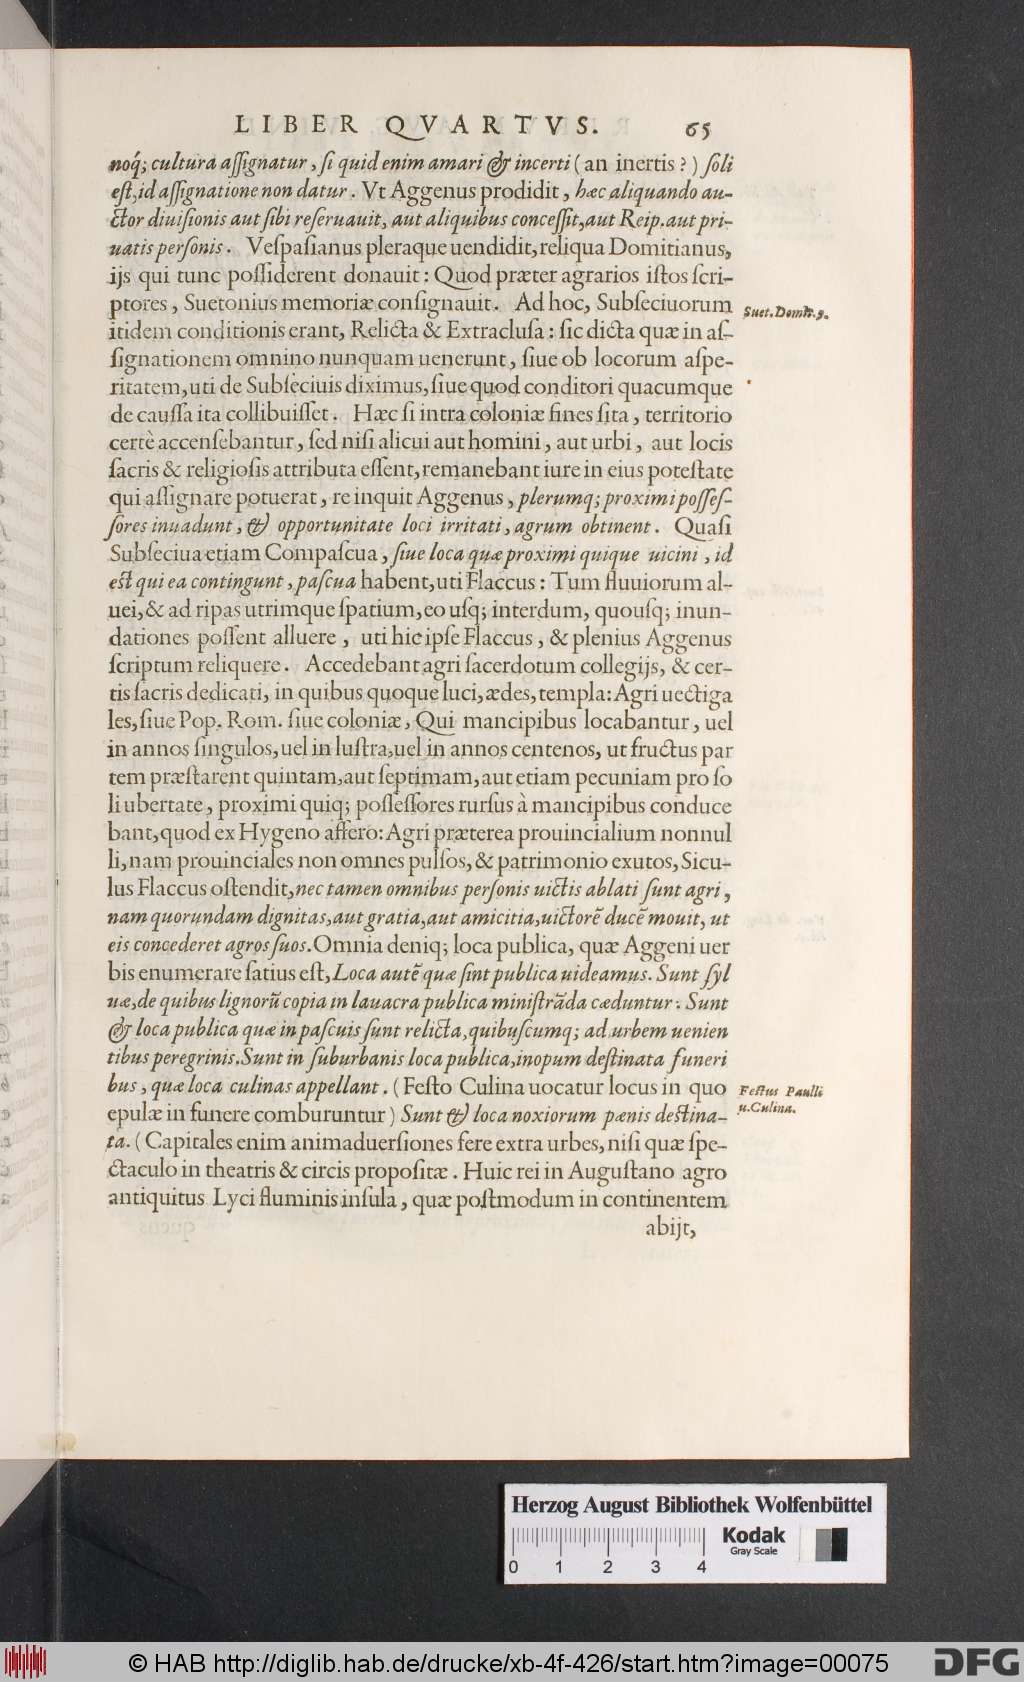 LIBER QVARTVS. 65
noq́; cultura aſſignatur, ſi quid enim amari & incerti (an inertis?) ſoli
eſt, id aſſignatione non datur. Vt Aggenus prodidit, hæc aliquando au-
ctor diuiſionis aut ſibi reſeruauit, aut aliquibus conceſſit, aut Reip. aut pri-
uatis perſonis. Veſpaſianus pleraque uendidit, reliqua Domitianus,
ijs qui tunc poſſiderent donauit: Quod præter agrarios iſtos ſcri-
ptores, Suetonius memoriæ conſignauit. Ad hoc, Subſeciuorum
Suet. Domit. 9.
itidem conditionis erant, Relicta & Extracluſa: ſic dicta quæ in aſ-
ſignationem omnino nunquam uenerunt, ſiue ob locorum aſpe-
ritatem, uti de Subſeciuis diximus, ſiue quod conditori quacumque
de cauſſa ita collibuiſſet. Hæc ſi intra coloniæ fines ſita, territorio
certè accenſebantur, ſed niſi alicui aut homini, aut urbi, aut locis
ſacris & religioſis attributa eſſent, remanebant iure in eius poteſtate
qui aſſignare potuerat, re inquit Aggenus, plerumq; proximi poſſeſ-
ſores inuadunt, & opportunitate loci irritati, agrum obtinent. Quaſi
Subſeciua etiam Compaſcua, ſiue loca quæ proximi quique uicini, id
eſt qui ea contingunt, paſcua habent, uti Flaccus: Tum fluuiorum al-
uei, & ad ripas utrimque ſpatium, eo uſq; interdum, quouſq; inun-
dationes poſſent alluere, uti hic ipſe Flaccus, & plenius Aggenus
ſcriptum reliquere. Accedebant agri ſacerdotum collegijs, & cer-
tis ſacris dedicati, in quibus quoque luci, ædes, templa: Agri uectiga
les, ſiue Pop. Rom. ſiue coloniæ, Qui mancipibus locabantur, uel
in annos ſingulos, uel in luſtra, uel in annos centenos, ut fructus par
tem præſtarent quintam, aut ſeptimam, aut etiam pecuniam pro ſo
li ubertate, proximi quiq; poſſeſſores rurſus à mancipibus conduce
bant, quod ex Hygeno affero: Agri præterea prouincialium nonnul
li, nam prouinciales non omnes pulſos, & patrimonio exutos, Sicu-
lus Flaccus oſtendit, nec tamen omnibus perſonis uictis ablati ſunt agri,
nam quorundam dignitas, aut gratia, aut amicitia, uictorẽ ducẽ mouit, ut
eis concederet agros ſuos. Omnia deniq; loca publica, quæ Aggeni uer
bis enumerare ſatius eſt, Loca autẽ quæ ſint publica uideamus. Sunt ſyl
uæ, de quibus lignorũ copia in lauacra publica miniſtrãda cæduntur: Sunt
& loca publica quæ in paſcuis ſunt relicta, quibuſcumq; ad urbem uenien
tibus peregrinis. Sunt in ſuburbanis loca publica, inopum deſtinata funeri
bus, quæ loca culinas appellant. (Feſto Culina uocatur locus in quo
Feſtus Paulli
u. Culina.
epulæ in funere comburuntur) Sunt & loca noxiorum pœnis deſtina-
ta. (Capitales enim animaduerſiones fere extra urbes, niſi quæ ſpe-
ctaculo in theatris & circis propoſitæ. Huic rei in Auguſtano agro
antiquitus Lyci fluminis inſula, quæ poſtmodum in continentem
abijt,
Herzog August Bibliothek Wolfenbüttel
0 1 2 3 4
Kodak
Gray Scale
© HAB http://diglib.hab.de/drucke/xb-4f-426/start.htm?image=00075
DFG